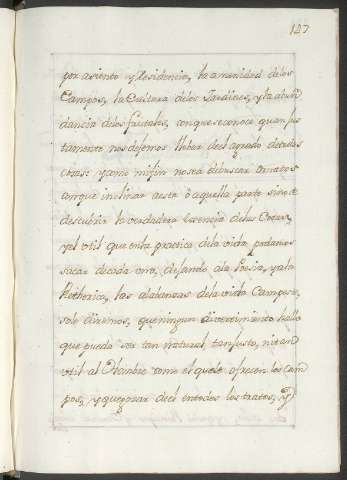 147
por asiento y Residencia, la amenidad de los
Campos, la Cultura de los Jardines, y la abun
dancia de los frutales, con que se conoce quan jus
tamente nos dejemos llebar del agrado de tales
cosas: y como mi fin no sea el buscar ornatos
con que inclinar a esta ô aquella parte sino de
descubrir la verdadera esencia de las Cosas,
y el util que en la practica de la vida podamos
sacar de cada una, dejando â la Poesia, y a la
Rethorica, las alabanzas de la vida Campestre,
solo diremos, que ningun divertimiento hallo
que pueda ser tan natural, tan justo, ni tan
util al Hombre como el que le ofrecen los Cam
pos, y que gozar de el en todos los tratos, y